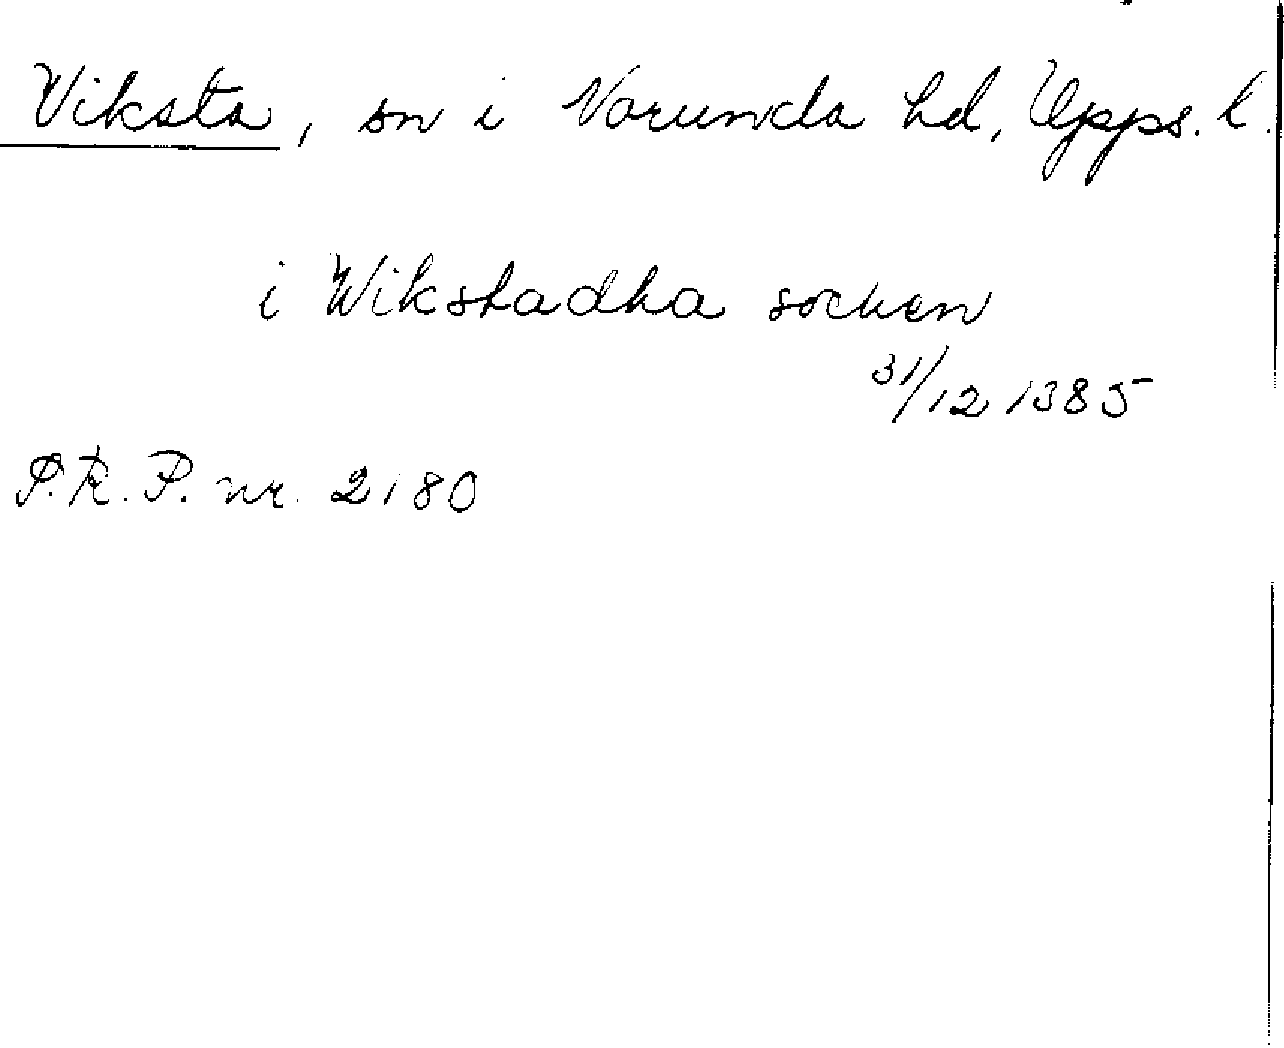 Viksta, sn i Norunda hd, Upps. l.
i Wikstadha socken
31/12 1385
S.R.P. nr. 2180